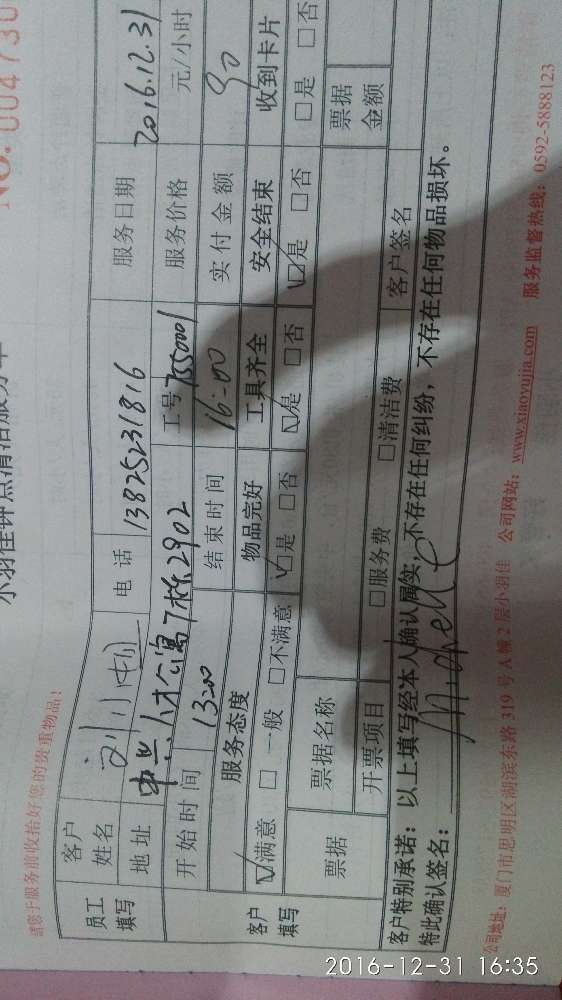 NO. 004730
小羽佳钟点清洁服务单
请您于服务前收拾好您的贵重物品！
员工填写
客户姓名
电话 13825231816
服务日期 2016.12.31
地址 中兴人才公寓7栋2902
工号 7550001
服务价格 元/小时
开始时间 13:00
结束时间 16:00
实付金额 90
客户填写
服务态度 物品完好 工具齐全 安全结束 收到卡片
☑满意 □一般 □不满意 ☑是 □否 ☑是 □否 ☑是 □否 □是 □否
票据 票据名称 票据金额
开票项目 □服务费 □清洁费 客户签名
客户特别承诺：以上填写经本人确认属实，不存在任何纠纷，不存在任何物品损坏。
特此确认签名： Michelle
公司地址：厦门市思明区湖滨东路 319 号 A 幢 2 层小羽佳 公司网站：www.xiaoyujia.com 服务监督热线：0592-5888123
2016-12-31 16:35